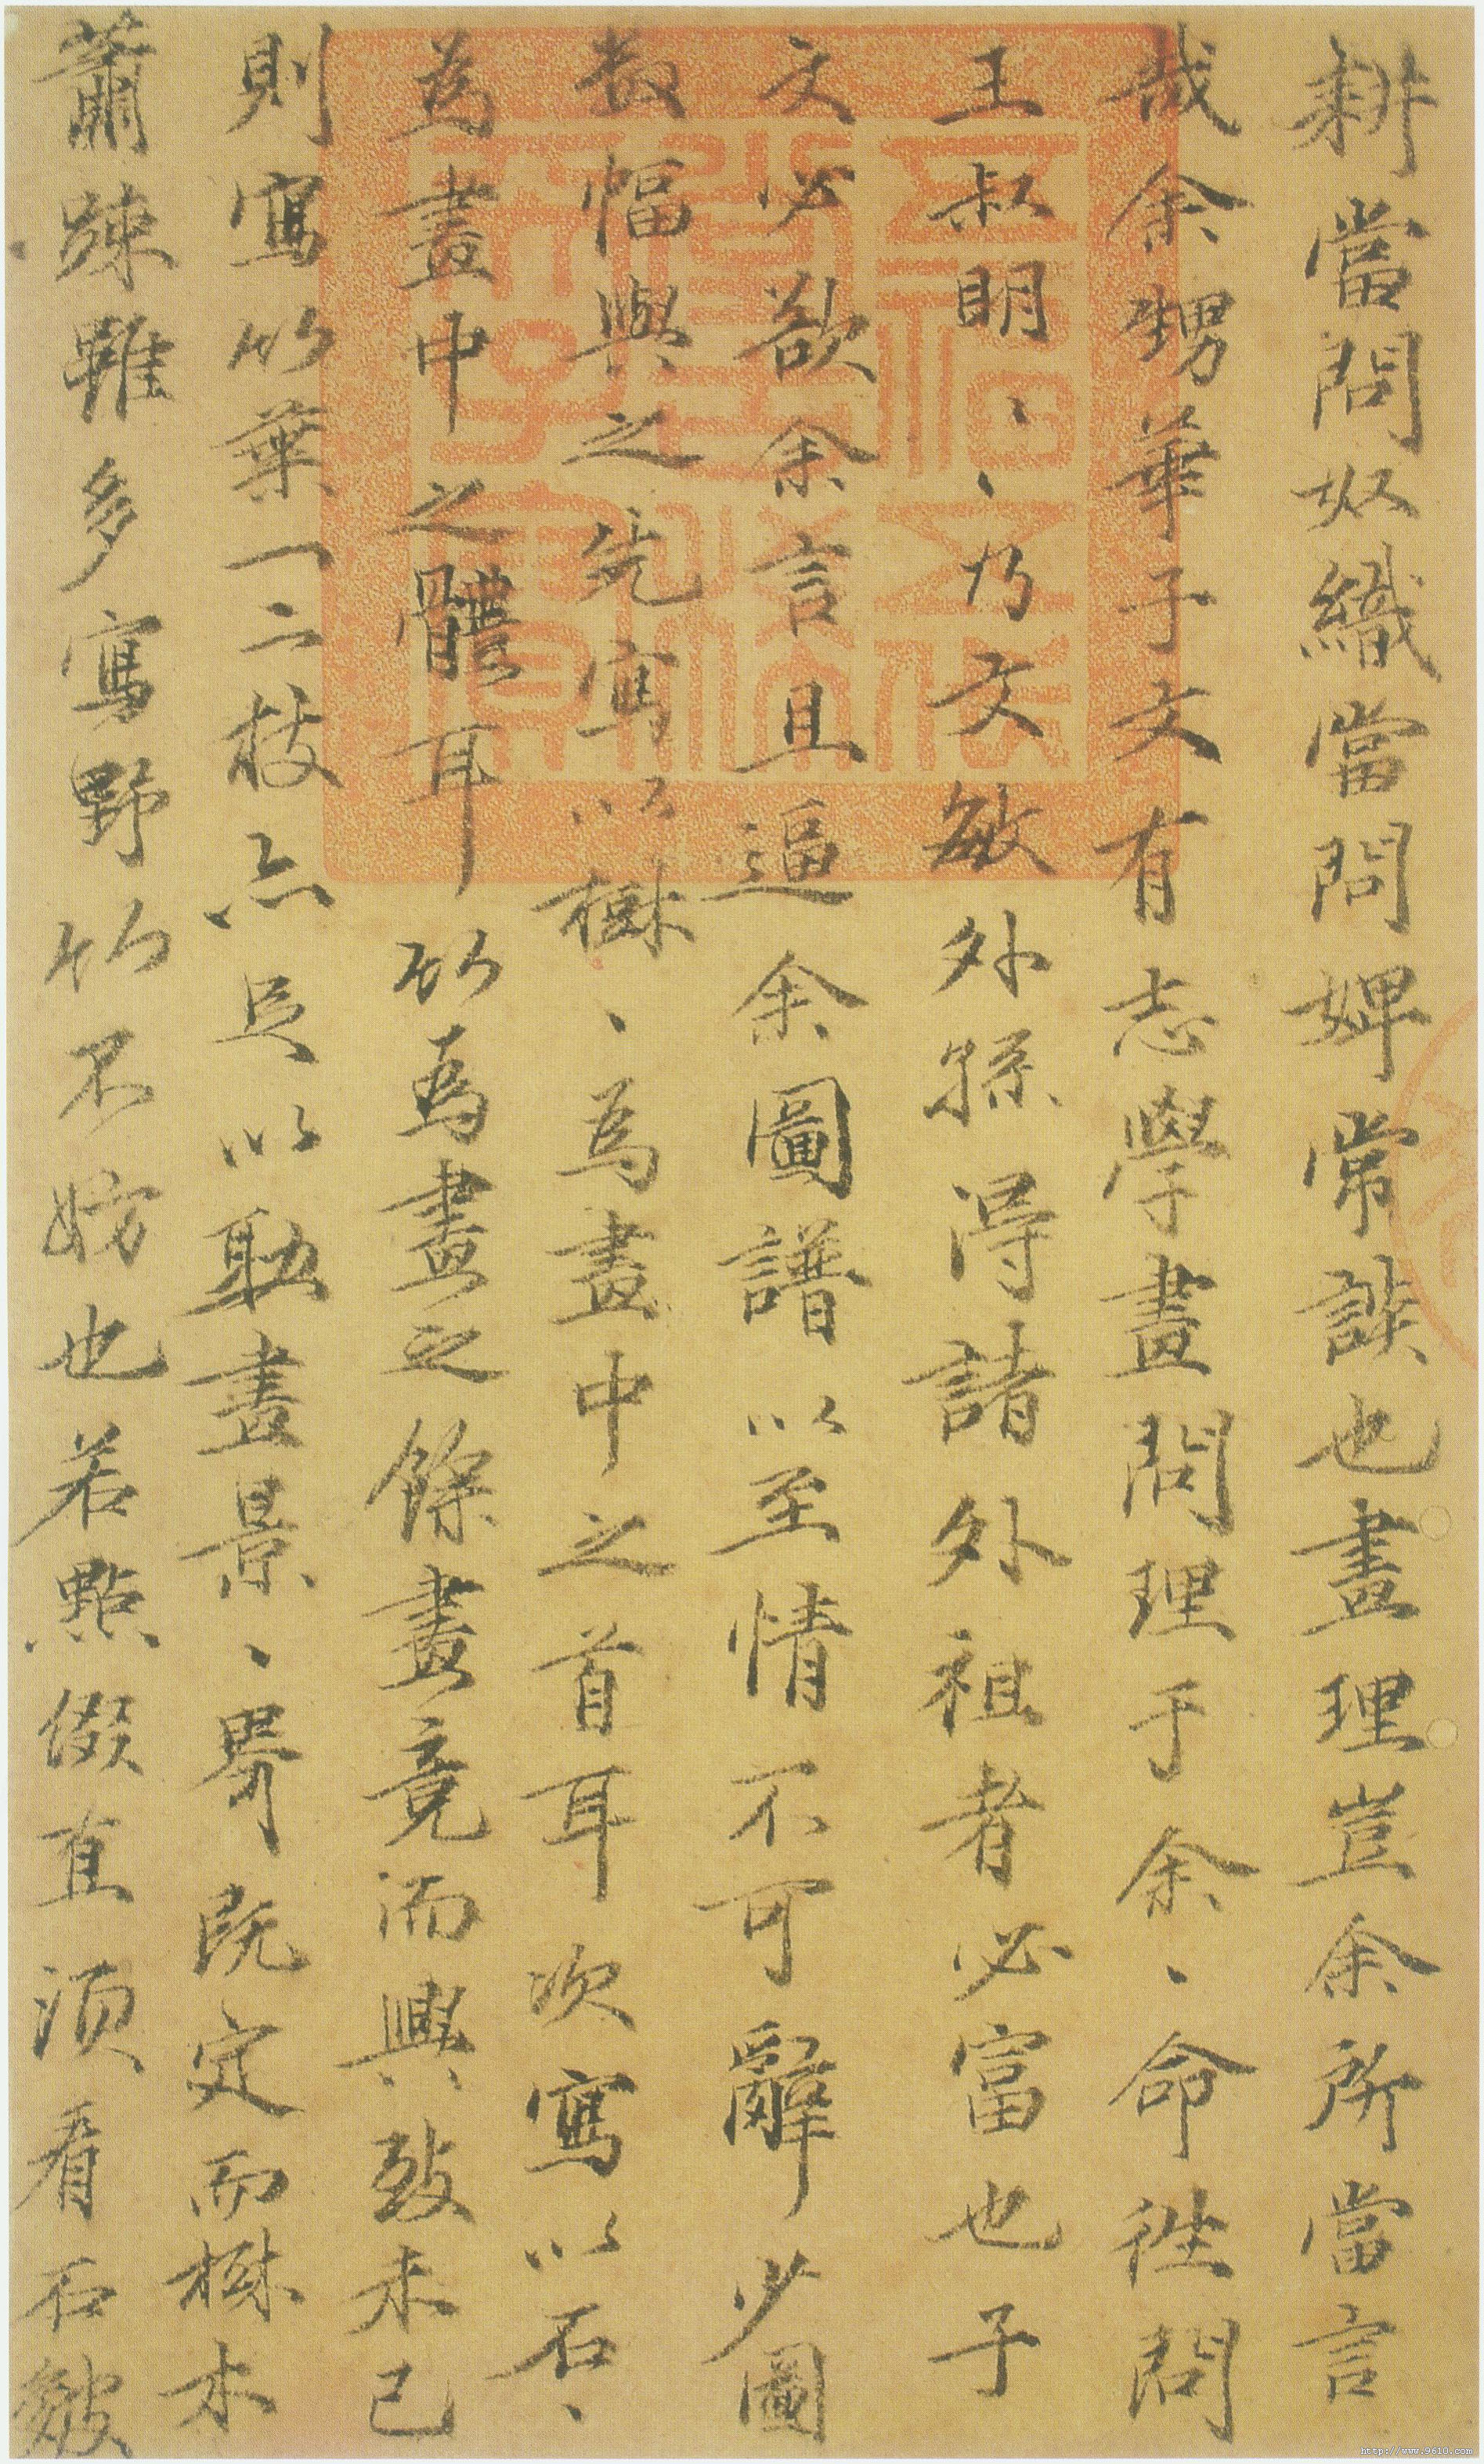 耕當問奴織當問婢常談也畫理豈余所當言
哉余甥華子文有志學畫問理于余、命往問
王叔明、、乃文敏外孫得諸外祖者必富也子
文必欲余言且逼余圖譜以至情不可辭少圖
數幅與之先寫以樹、為畫中之首耳次寫以石、
為畫中之體耳竹為畫之餘畫竟而興致未已
則寫竹葉一二枝亦足以助畫景、界既定而樹木
蕭疎雖多寫野竹不妨也若點綴直須看石皴
五福五代堂古稀天子寶
http://www.9610.com